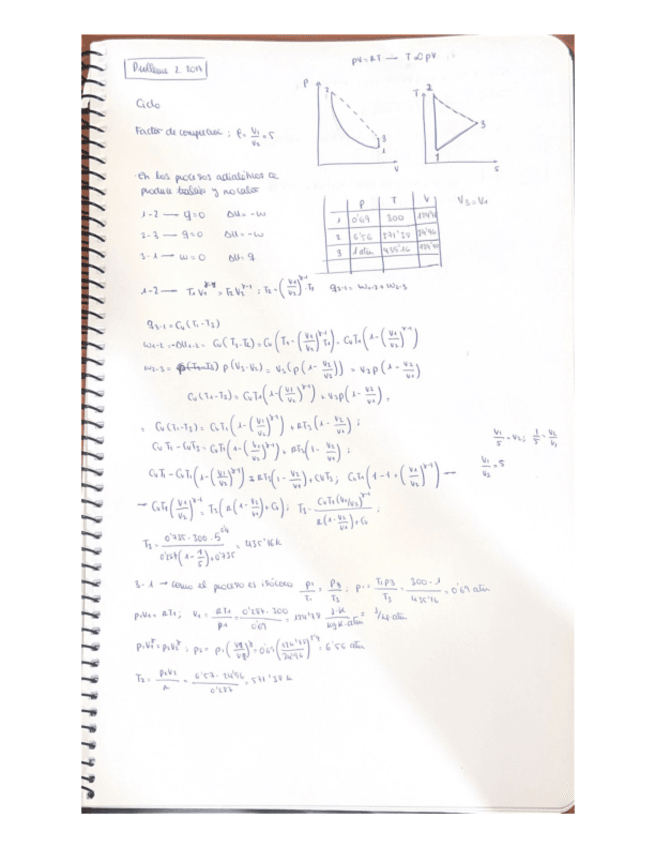 pV=RT — T∝pV
Problema 2 2017
Ciclo
P
2
3
1
V
T
2
3
1
S
Factor de compresión : r = V1/V2 = 5
En los procesos adiabáticos se
produce trabajo y no calor
1-2 — q=0 ΔU=-w
2-3 — q=0 ΔU=-w
3-1 — w=0 ΔU=q
P T V
1 0'69 300
2 6'56 571'28 24'96
3 1 atm 435'16
V3=V1
1-2 — T1V1^γ-1 = T2V2^γ-1 ; T2 = (V1/V2)^γ-1 · T1 q3-1 = w1-2 + w2-3
q3-1 = Cv(T1-T3)
w1-2 = -ΔU1-2 = Cv(T1-T2) = Cv(T1-(V1/V2)^γ-1 T1) = CvT1(1-(V1/V2)^γ-1)
w2-3 = p(V3-V2) = V3(p(1-V2/V3)) = V3p(1-V2/V1)
Cv(T1-T3) = CvT1(1-(V1/V2)^γ-1) + V3p(1-V2/V1) =
= Cv(T1-T3) = CvT1(1-(V1/V2)^γ-1) + RT3(1-V2/V1) ;
CvT1-CvT3 = CvT1(1-(V1/V2)^γ-1) + RT3(1-V2/V1) ;
V1/5 = V2 ; 1/5 = V2/V1
V1/V2 = 5
CvT1-CvT1(1-(V1/V2)^γ-1) = RT3(1-V2/V1)+CvT3 ; CvT1(1-1+(V1/V2)^γ-1) —
— CvT1(V1/V2)^γ-1 = T3(R(1-V2/V1)+Cv) ; T3 = CvT1(V1/V2)^γ-1 / R(1-V2/V1)+Cv ;
T3 = 0'735·300·5^0'4 / 0'287(1-1/5)+0'735 = 435'16 K
3-1 → como el proceso es isócoro p1/T1 = p3/T3 ; p1 = T1p3/T3 = 300·1/435'16 = 0'69 atm
p1V1 = RT1 ; V1 = RT1/p1 = 0'287·300/0'69 = 124'78 J·K/kgK·atm = J/kg·atm
p1V1^γ = p2V2^γ ; p2 = p1(V1/V2)^γ = 0'69(124'78/24'96)^1'4 = 6'56 atm
T2 = p2V2/R = 6'57·24'96/0'287 = 571'28 K